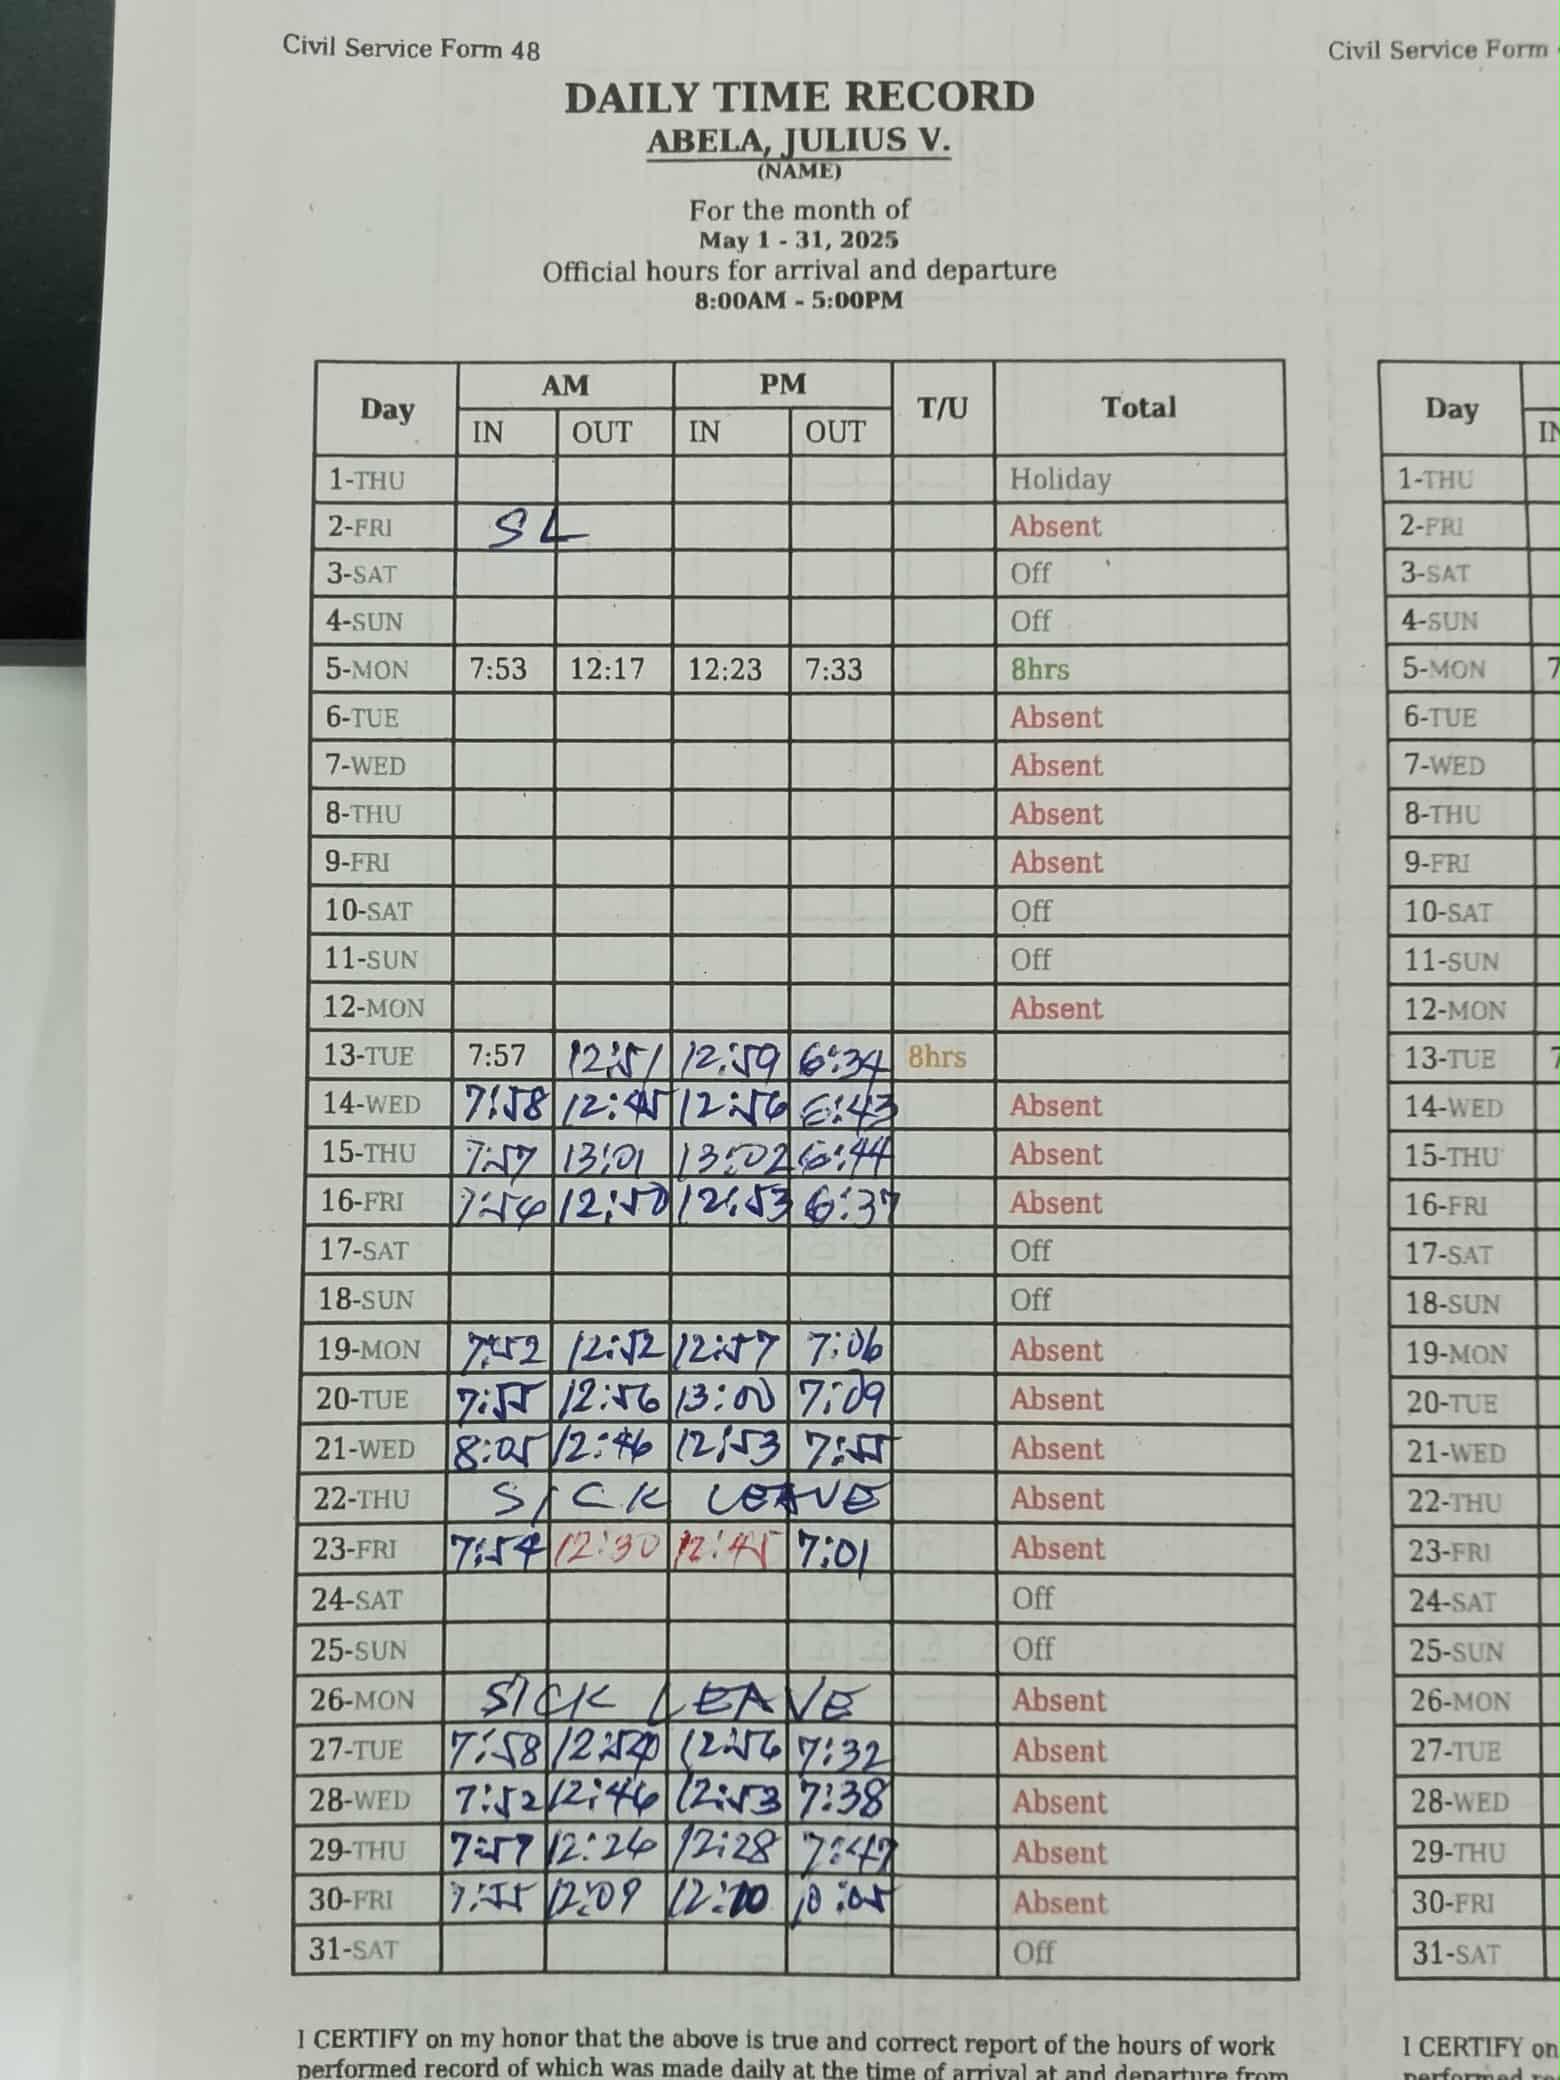 Civil Service Form 48
Civil Service Form
DAILY TIME RECORD
ABELA, JULIUS V.
(NAME)
For the month of
May 1 - 31, 2025
Official hours for arrival and departure
8:00AM - 5:00PM
Day AM PM T/U Total
IN OUT IN OUT
1-THU Holiday
2-FRI SL Absent
3-SAT Off
4-SUN Off
5-MON 7:53 12:17 12:23 7:33 8hrs
6-TUE Absent
7-WED Absent
8-THU Absent
9-FRI Absent
10-SAT Off
11-SUN Off
12-MON Absent
13-TUE 7:57 12:51 12:59 6:34 8hrs
14-WED 7:58 12:45 12:56 6:43 Absent
15-THU 7:57 13:01 13:02 6:44 Absent
16-FRI 7:56 12:50 12:53 6:37 Absent
17-SAT Off
18-SUN Off
19-MON 7:52 12:52 12:57 7:06 Absent
20-TUE 7:55 12:56 13:00 7:09 Absent
21-WED 8:05 12:46 12:53 7:55 Absent
22-THU SICK LEAVE Absent
23-FRI 7:54 12:30 12:45 7:01 Absent
24-SAT Off
25-SUN Off
26-MON SICK LEAVE Absent
27-TUE 7:58 12:56 7:32 Absent
28-WED 7:52 12:46 12:53 7:38 Absent
29-THU 7:57 12:26 12:28 7:47 Absent
30-FRI 7:55 12:09 10:05 Absent
31-SAT Off
I CERTIFY on my honor that the above is true and correct report of the hours of work
performed record of which was made daily at the time of arrival at and departure from
Day
IN
1-THU
2-FRI
3-SAT
4-SUN
5-MON 7
6-TUE
7-WED
8-THU
9-FRI
10-SAT
11-SUN
12-MON
13-TUE 7
14-WED
15-THU
16-FRI
17-SAT
18-SUN
19-MON
20-TUE
21-WED
22-THU
23-FRI
24-SAT
25-SUN
26-MON
27-TUE
28-WED
29-THU
30-FRI
31-SAT
I CERTIFY on